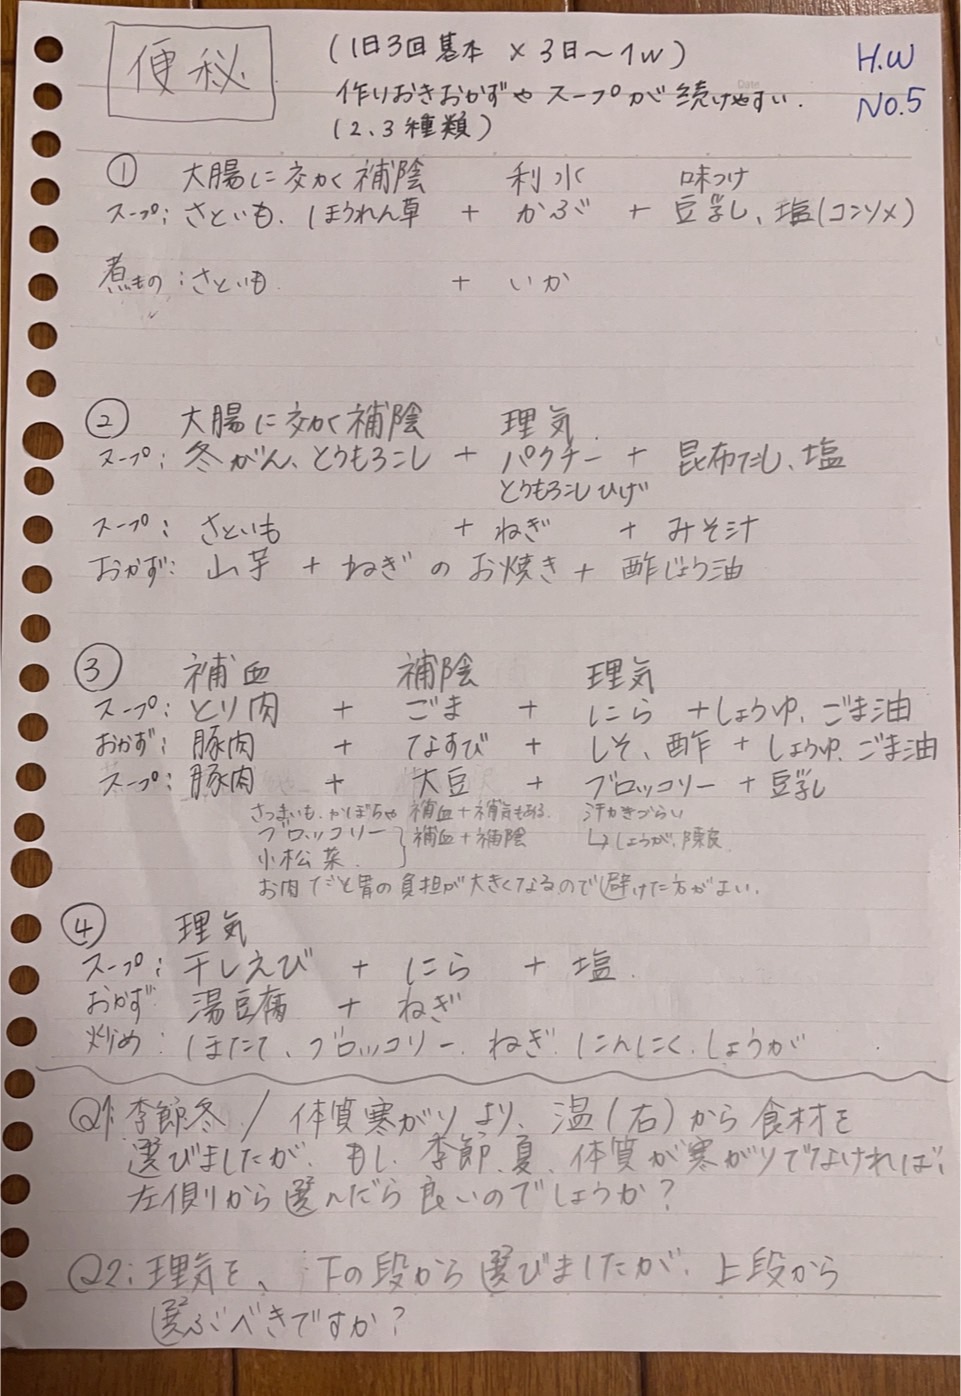 便秘
(1日3回基本 × 3日〜1w)
H.W
No.5
作りおきおかずや スープが 続けやすい.
(2、3種類)
① 大腸に効く補陰 利水 味つけ
スープ: さといも、ほうれん草 + かぶ + 豆乳、塩(コンソメ)
煮もの: さといも + いか
② 大腸に効く補陰 理気.
スープ: 冬がん、とうもろこし + パクチー + 昆布だし、塩
とうもろこしひげ
スープ: さといも + ねぎ + みそ汁
おかず: 山芋 + ねぎ の お焼き + 酢じょう油
③ 補血 補陰 理気
スープ: とり肉 + ごま + にら + しょうゆ、ごま油
おかず: 豚肉 + なすび + しそ、酢 + しょうゆ、ごま油
スープ: 豚肉 + 大豆 + ブロッコリー + 豆乳
さつまいも、かぼちゃ 補血+補気もある. 汗かきづらい
ブロッコリー 補血+補陰 ↳しょうが、陳皮
小松菜.
お肉だと胃の負担が大きくなるので避けた方がよい.
④ 理気
スープ: 干しえび + にら + 塩.
おかず 湯豆腐 + ねぎ
炒め: ほたて、ブロッコリー、ねぎ、にんにく、しょうが
Q1: 季節冬 / 体質寒がりより、温(右)から食材を
選びましたが、もし、季節、夏、体質が寒がりでなければ、
左側から選んだら良いのでしょうか?
Q2: 理気を、下の段から選びましたが、上段から
選ぶべきですか?